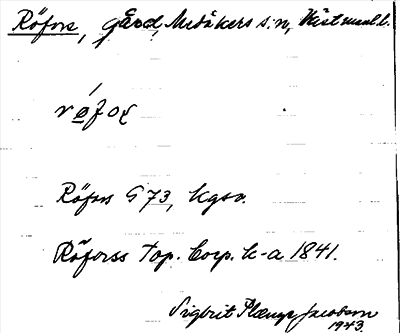 Röfors, gård, Medåkers s:n, Västmanl.l.
röfoʂ
Röfors G 73, kgsv.
Röforss Top. Corp. k-a 1841.
Sigbrit Plænge Jacobson
1943.